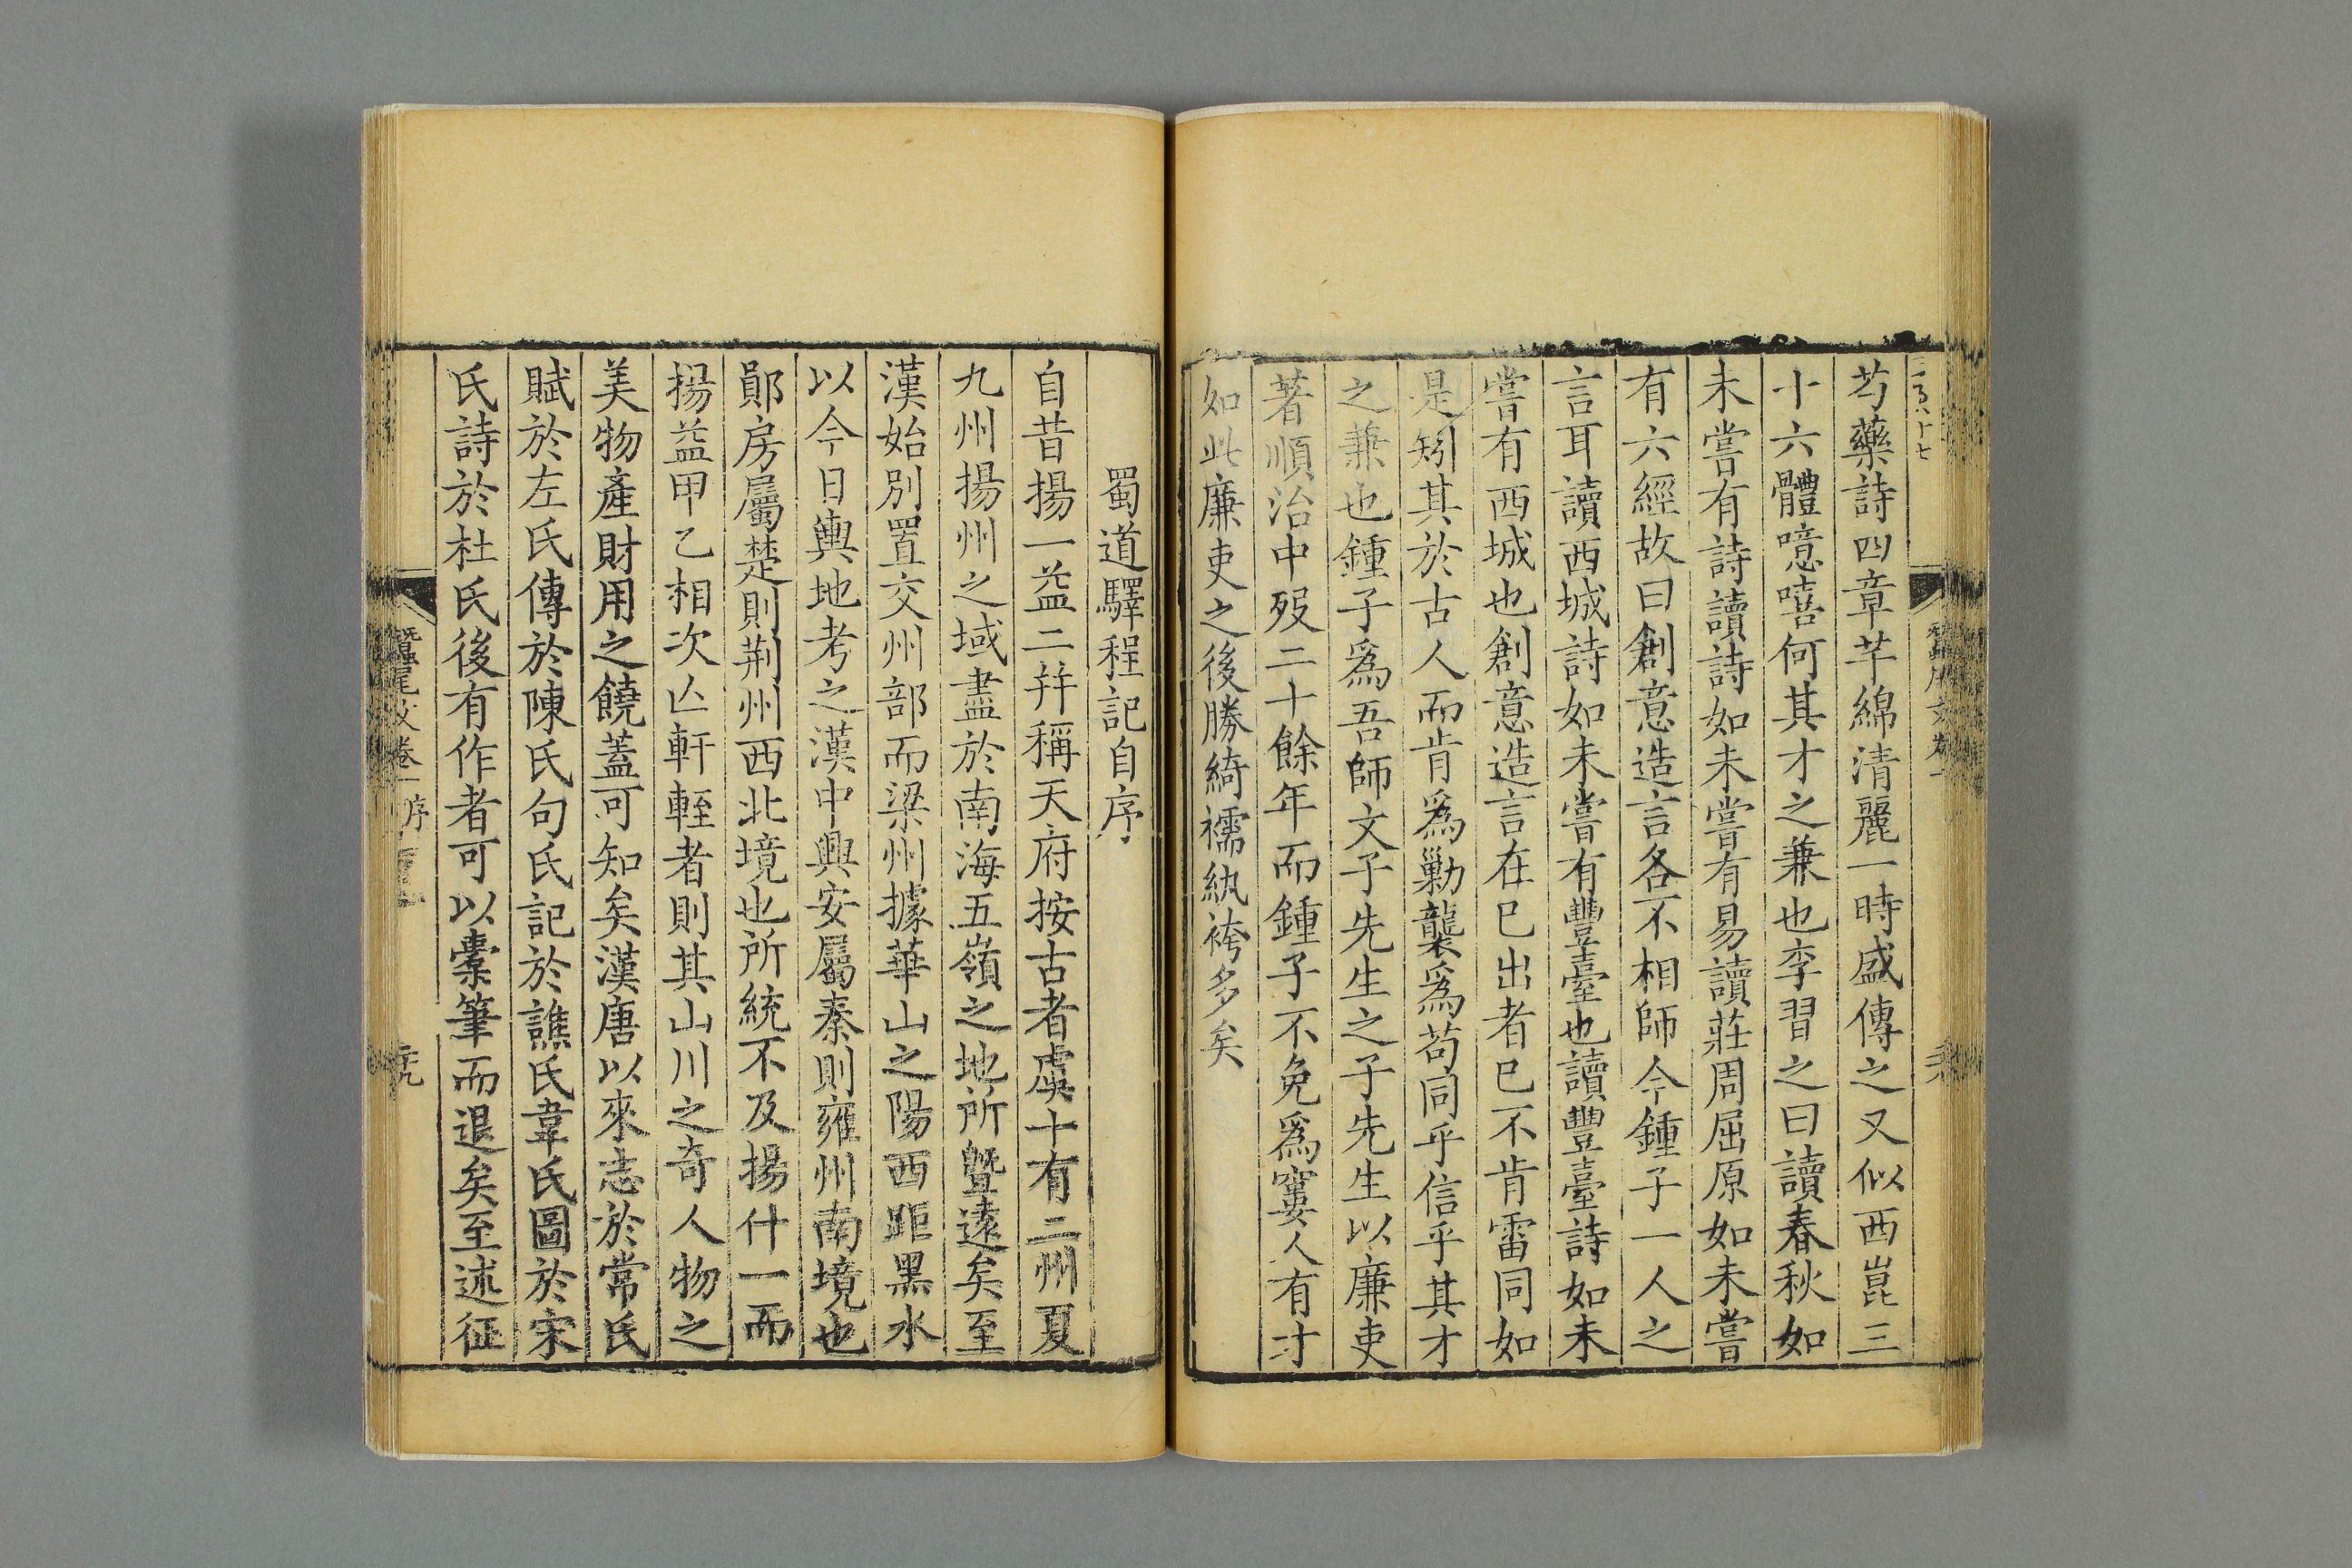 芍藥詩四章芊綿清麗一時盛傳之又似西崑三
十六體噫嘻何其才之兼也李習之曰讀春秋如
未嘗有詩讀詩如未嘗有易讀莊周屈原如未嘗
有六經故曰創意造言各不相師今鍾子一人之
言耳讀西城詩如未嘗有豐臺也讀豐臺詩如未
嘗有西城也創意造言在已出者已不肯雷同如
是矧其於古人而肯爲勦襲爲苟同乎信乎其才
之兼也鍾子爲吾師文子先生之子先生以廉吏
著順治中歿二十餘年而鍾子不免爲窶人有才
如此廉吏之後勝綺襦紈袴多矣
蜀道驛程記自序
自昔揚一益二幷稱天府按古者虞十有二州夏
九州揚州之域盡於南海五嶺之地所曁遠矣至
漢始別置交州部而梁州據華山之陽西距黑水
以今日輿地考之漢中興安屬秦則雍州南境也
鄖房屬楚則荆州西北境也所統不及揚什一而
揚益甲乙相次亾軒輊者則其山川之奇人物之
美物產財用之饒蓋可知矣漢唐以來志於常氏
賦於左氏傳於陳氏句氏記於譙氏韋氏圖於宋
氏詩於杜氏後有作者可以橐筆而退矣至述征
蠶尾文卷一 序